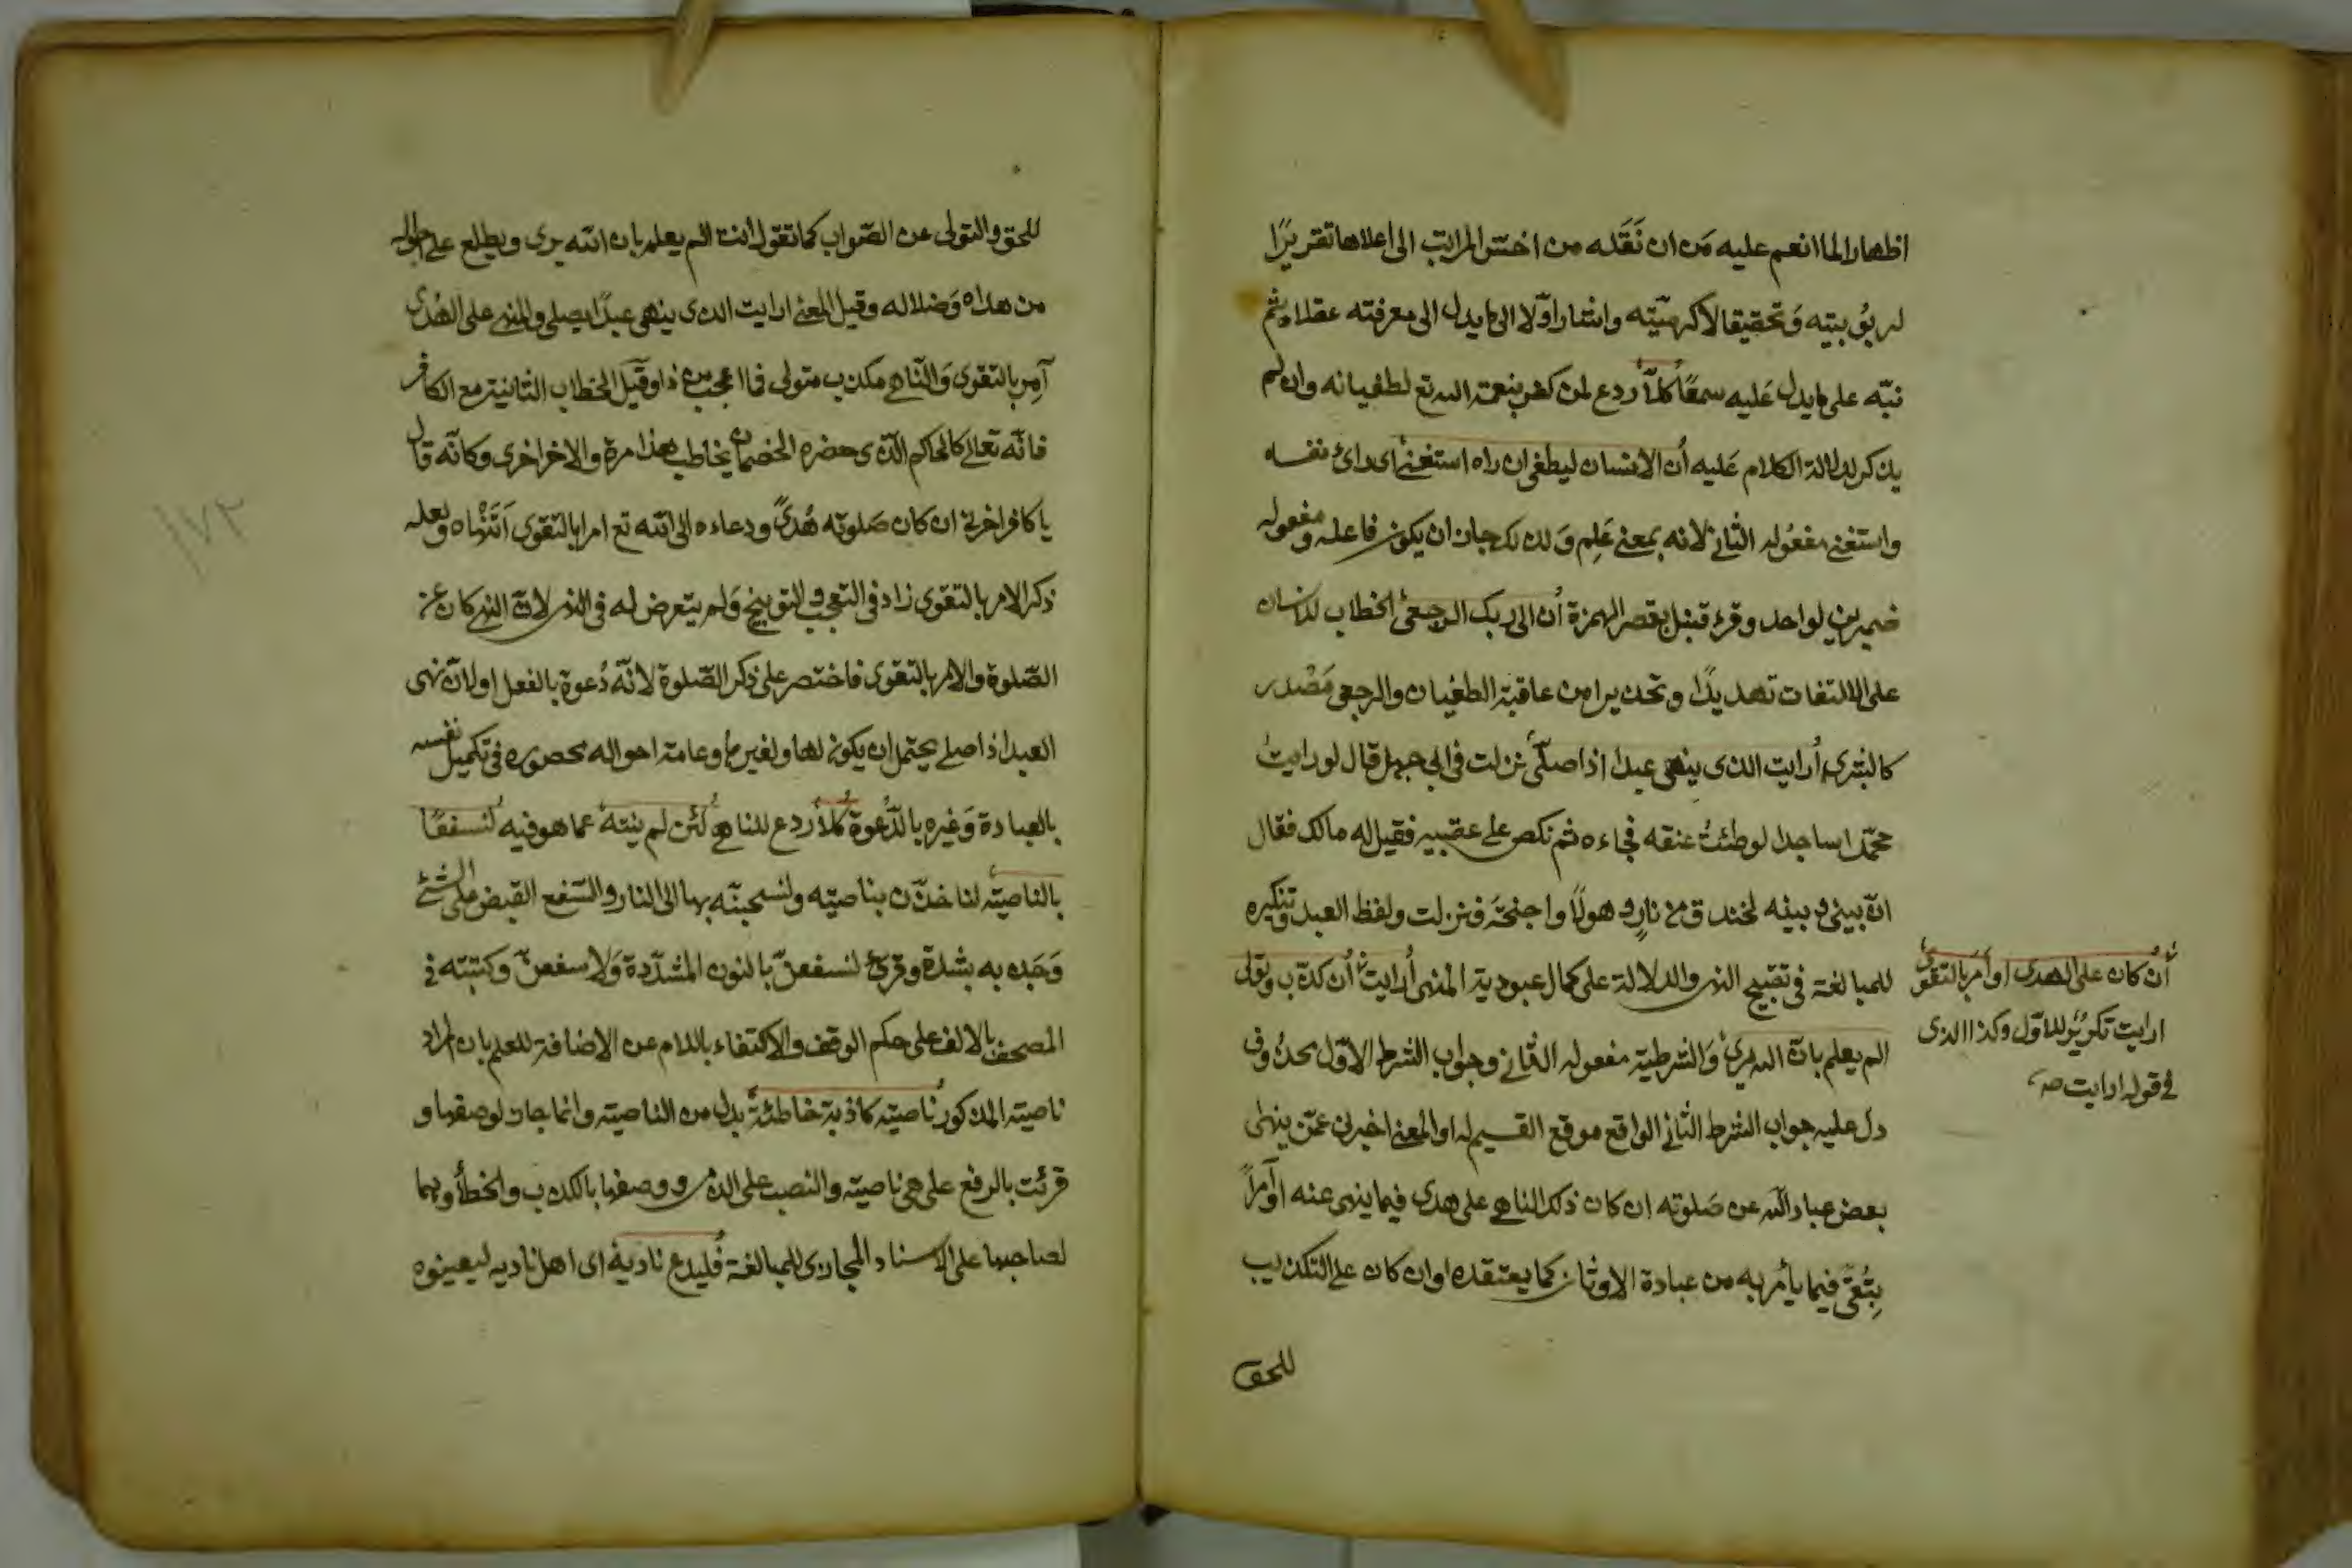 اظهارا لما انعم عليه من ان نقله من اخسّ المراتب الى اعلاها تقريرًا
لربوبيته وتحقيقا لاكرميّته واشار اوّلا الى ما يدل الى معرفته عقلا ثم
نبّه على ما يدل عليه سمعًا كلّا ردع لمن كفر بنعمة الله تع لطغيانه وان لم
يذكر لدلالة الكلام عليه ان الانسان ليطغى ان راه استغنى اى راى نفسه
واستغنى مفعوله الثانى لانه بمعنى علم ولذلك جاز ان يكون فاعله ومفعوله
ضميرين لواحد وقرئ قنبل بقصر الهمزة ان الى ربك الرجعى الخطاب للانسان
على الالتفات تهديدًا وتحذيرا من عاقبة الطغيان والرجعى مَصْدر
كالبشرى أرايت الذى ينهى عبدا اذا صلّى نزلت فى ابى جهل قال لو رايت
محمّدا ساجدا لوطئتُ عنقه فجاءه ثم نكص على عقبيه فقيل له مالك فقال
انّ بينى وبينه لخندق من نارٍ وهولًا واجنحة فنزلت ولفظ العبد وتنكيره
للمبالغة فى تقبيح النهى والدلالة على كمال عبودية المنهى أرايت ان كذّب وتولى
الم يعلم بانّ الله يرى والشرطية مفعوله الثانى وجواب الشرط الاوّل محذوف
دل عليه جواب الشرط الثانى الواقع موقع القسيم له او المعنى اخبرنى عمّن ينهى
بعض عباد الله عن صَلوته ان كان ذلك الناهى على هدى فيما ينهى عنه او آمراً
بتُقىً فيما يأمر به من عبادة الاوثان كما يعتقده او ان كان على التكذيب
للحق
أن كان على الهدى او امر بالتقوى
ارايت تكريرٌ للاوّل وكذا الذى
فى قوله ارايت صح
للحق والتولى عن الصّواب كما تقول انت الم يعلم بان الله يرى ويطلع على احواله
من هداه وضلاله وقيل المعنى ارايت الذى ينهى عبدًا يصلى والمنهى على الهُدى
آمِر بالتقوى والنّاهى مكذب متولى فما اعجب من ذا وقيل الخطاب الثانية مع الكافر
فانّه تعالى كالحاكم الّذى حضره الخصمان يخاطب هذا مرة والاخر اخرى وكانّه قال
يا كافر اخبرنى ان كان صَلوته هُدىً ودعاءه الى الله تع امرا بالتقوى اَتَنْهاه ولعله
ذكر الامر بالتقوى زاد فى التعجب والتوبيخ ولم يتعرض له فى النهى لانّ النهى كان عن
الصّلوة والامر بالتقوى فاختصر على ذكر الصّلوة لانّه دعوة بالفعل او لانّ نهى
العبد اذا صلى يحتمل ان يكون لها ولغيرها وعامة احواله محصوره فى تكميل نفسه
بالعبادة وغيره بالدّعوة كلّا ردع للناهى لئن لم ينته عما هو فيه لنسفعًا
بالناصية لناخذّن بناصيته ولنسحبنّه بها الى النار والسّفع القبض على الشئ
وَجَذبه بشدة وقرئ لنسفعنّ بالنون المشدّدة ولاسفعنّ وكتبته فى
المصحف بالالف على حكم الوقف والاكتفاء باللام عن الاضافة للعلم بان المراد
ناصية المذكور ناصية كاذبة خاطئة بدل من الناصية وانما جاز لوصفها و
قرئت بالرفع على هى ناصية والنصب على الذم ووصفها بالكذب والخطأ وهما
لصاحبها على الاسناد المجازى للمبالغة فليدع ناديه اى اهل ناديه ليعينوه
١٧٢